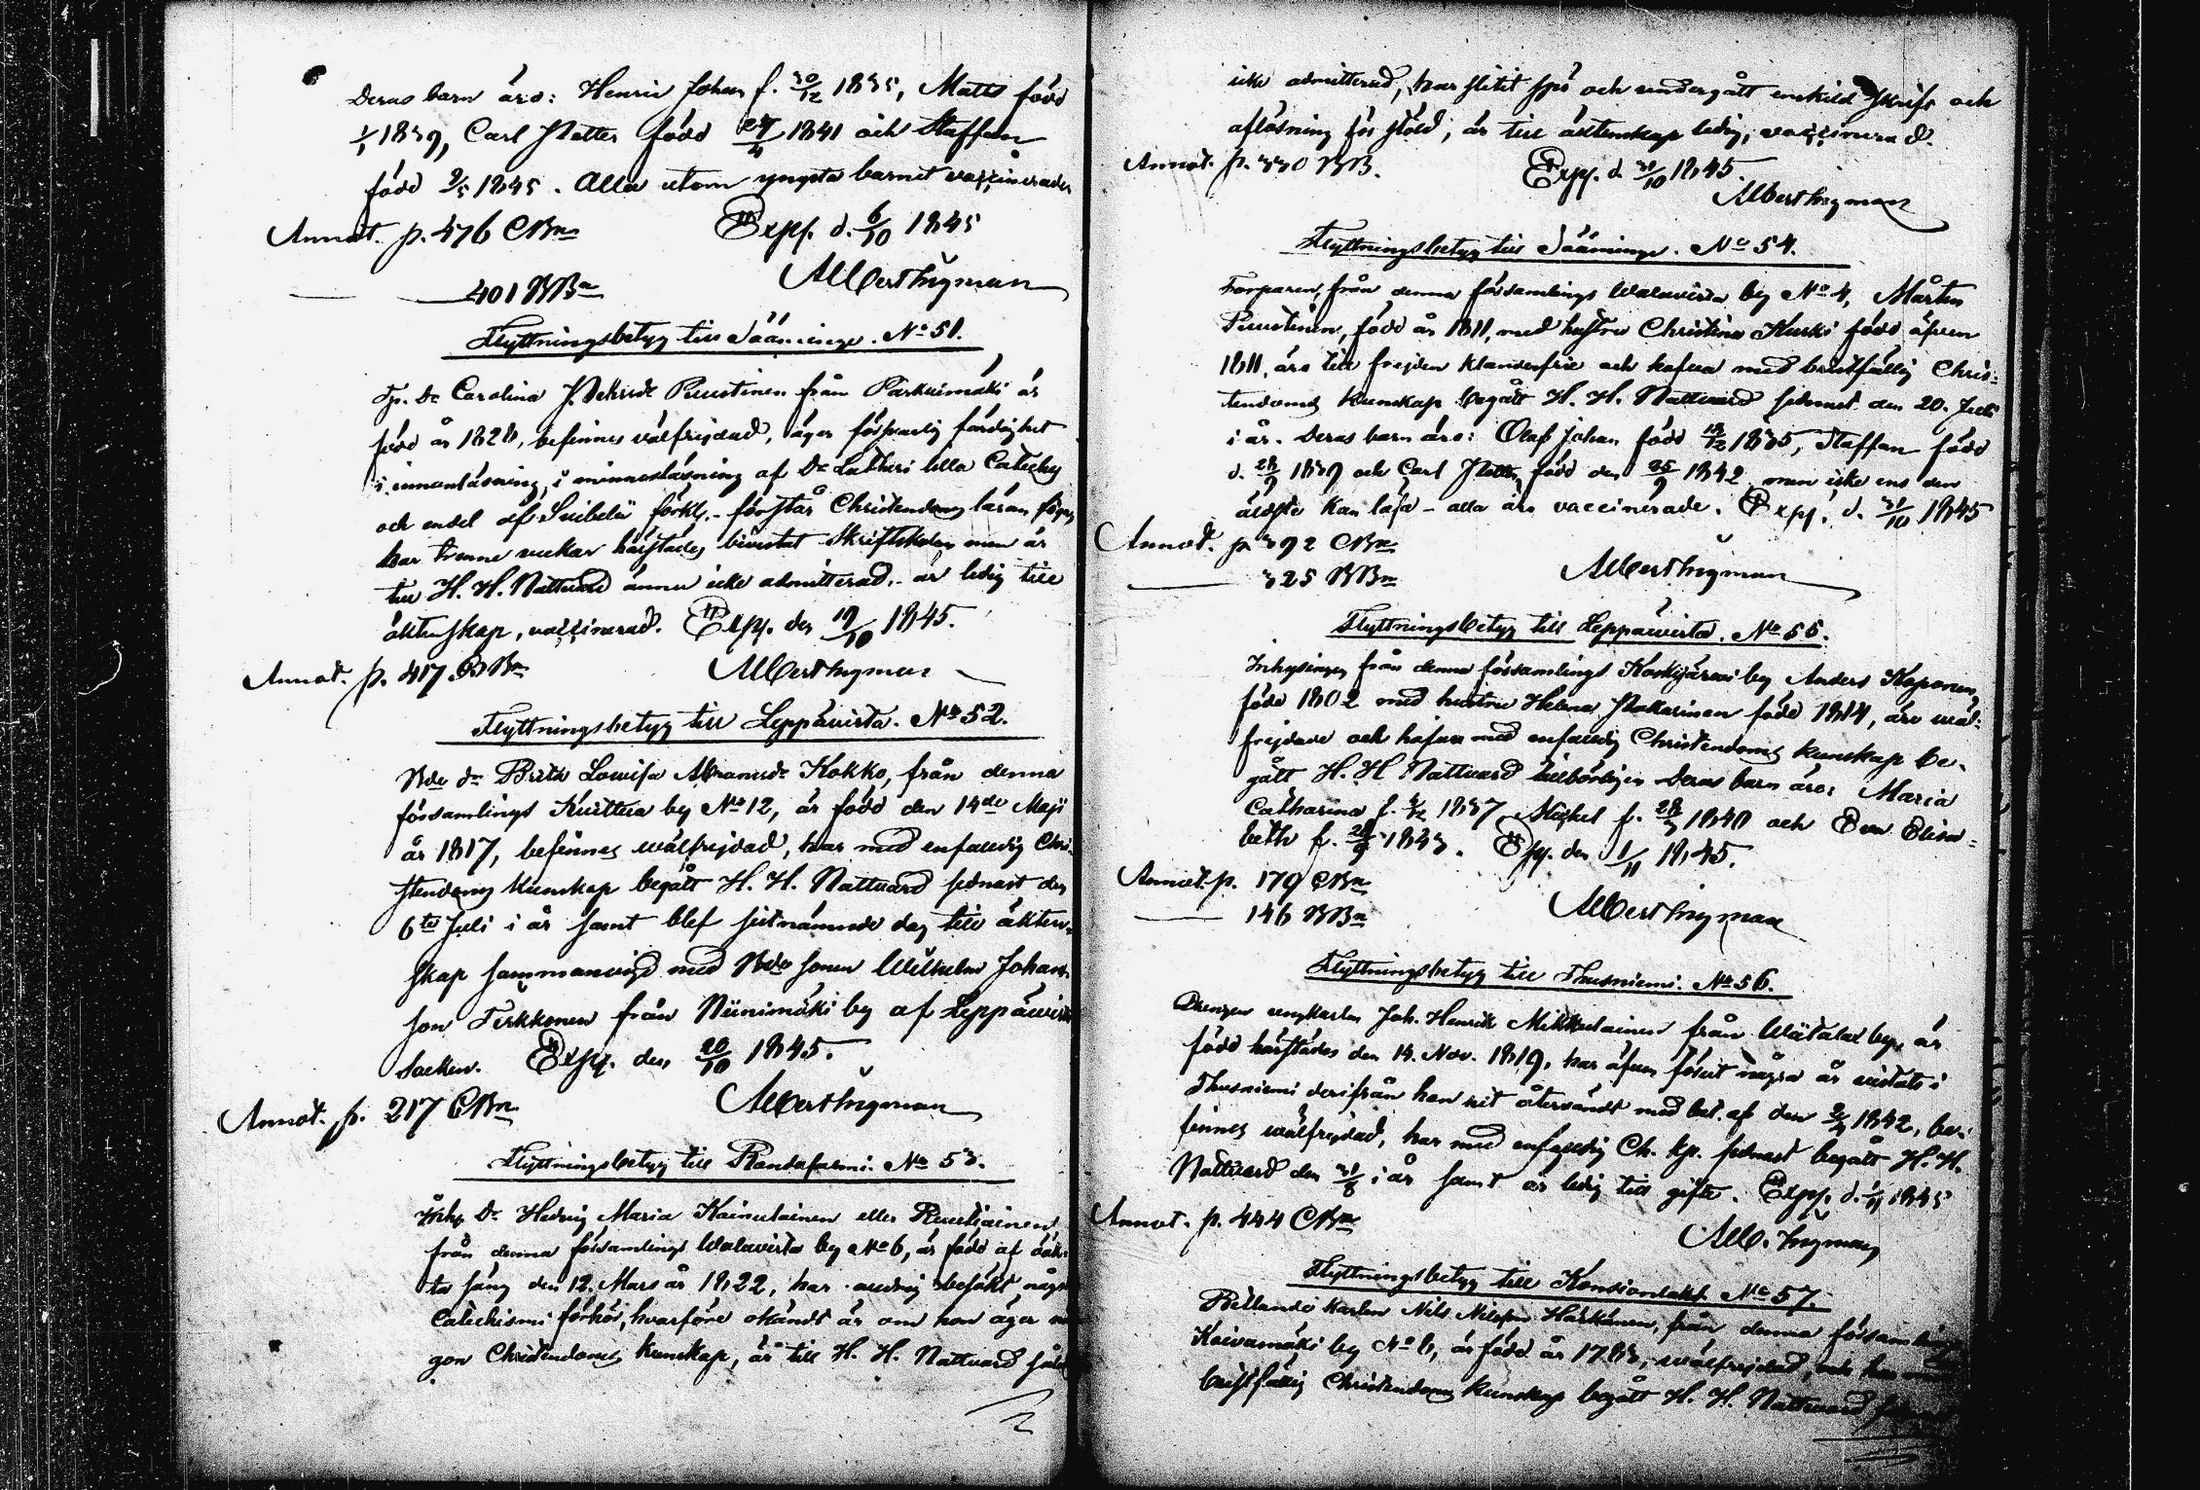 Deras barn äro: Henric Johan f. 30/12 1835, Matts född
1/1 1839, Carl Petter född 27/4 1841 och Staffan
född 2/5 1845. Alla utom yngsta barnet vaccinerade
Annot. p. 476 CBn Exp. d. 6/10 1845
401 BBn Alb ert Ingman
Flyttningsbetyg till Sääminge. No 51.
Carolina Puustinen från Parkuimäki är
född år 1828, befinnes välfrejdad, äger försvarlig färdighet
i innanläsning, i minnesläsning af Dr Luthers lilla Cateches
och endel af Svibelii förkl. förstår Christendoms läran
har trenne veckor härstädes bivistat Skriftskolan men är
till H. H. Nattvard ännu icke admitterad, är ledig till
äktenskap, vaccinerad. Exp. den 19/10 1845.
Annot. p. 417 CBn Albert Ingman
Flyttningsbetyg till Leppävirta. No 52.
Bde dr Brita Lowisa Abramsdr Kokko, från denna
församlings Kurttua by No 12, är född den 14de Maji
år 1817, befinnes wälfrejdad, har med enfaldig Chri-
stendoms kunskap begått H. H. Nattvard sednast den
6te Juli i år samt blef sistnämnde dag till äkten-
skap sammanvigd med Bde sonen Wilhelm Johans-
son Tirkkonen från Niinimäki by af Leppävirta
Socken. Exp. den 20/10 1845.
Annot. p. 217 CBn Albert Ingman
Flyttningsbetyg till Randasalmi. No 53.
Inhs Dr Hedvig Maria Kainulainen eller
från denna församlings Walavirta by No 6, är född af oäk-
ta säng den 12. Mars år 1822, har aldrig besökt några
Catechismi förhör, hvarföre okändt är om hon äger nå-
gon Christendoms kunskap, är till H. H. Nattvard
icke admitterad, har slitit spö och undergått enskild skrift och
aflösning för stöld, är till äktenskap ledig, vaccinerad.
Annot. p. 330 BB. Exp. d. 30/10 1845.
Albert Ingman
Flyttningsbetyg till Sääminge. No 54.
Torparen, från denna församlings Walavirta by No 4, Mårten
Puustinen, född år 1811, med hustru Christina Kurki född äfven
1811, äro till frejden klanderfrie och hafva med bristfällig Chris-
tendoms kunskap begått H. H. Nattvard sednast den 20. Juli
i år. Deras barn äro: Olof Johan född 18/12 1835, Staffan född
d. 28/9 1839 och Carl Petter född den 25/9 1842, men icke ens den
äldste kan läsa – alla äro vaccinerade. Exp. d. 31/10 1845
Annot. p 392 CBn
325 BBn Albert Ingman
Flyttningsbetyg till Leppävirta. No 55.
Inhysingen från denna församlings Koskijärvi by Anders Kaponen,
född 1802 med hustru Helena Pakarinen född 1814, äro väl-
frejdade och hafva med enfaldig Christendoms kunskap be-
gått H. H. Nattvard. Deras barn äro: Maria
Catharina f. 1837, Michel f. 28/3 1840 och Eva Elisa-
beth f. 1843. Exp. den 1/11 1845.
Annot. p. 179 CBn
146 BBn Albert Ingman
Flyttningsbetyg till Thusniemi. No 56.
Drengen ungkarlen Joh. Henrik Mikkulainen från by, är
född härstädes den 14. Nov. 1819, har äfven förut några år vistats i
Thusniemi derifrån han hit återvändt med bet. af den 1842, be-
finnes wälfrejdad, har med enfaldig Ch. kp. sednast begått H. H.
Nattvard den 31/8 i år samt är ledig till gifte. Exp. d. 1/11 1845
Annot. p. 444 CBn
Alb. Ingman
Flyttningsbetyg till No 57.
karlen Nils Nilsson Härkönen, från denna församlings
Koivumäki by No 6, är född år 1783, wälfrejdad, och har med
bristfällig Christendoms kunskap begått H. H. Nattvard